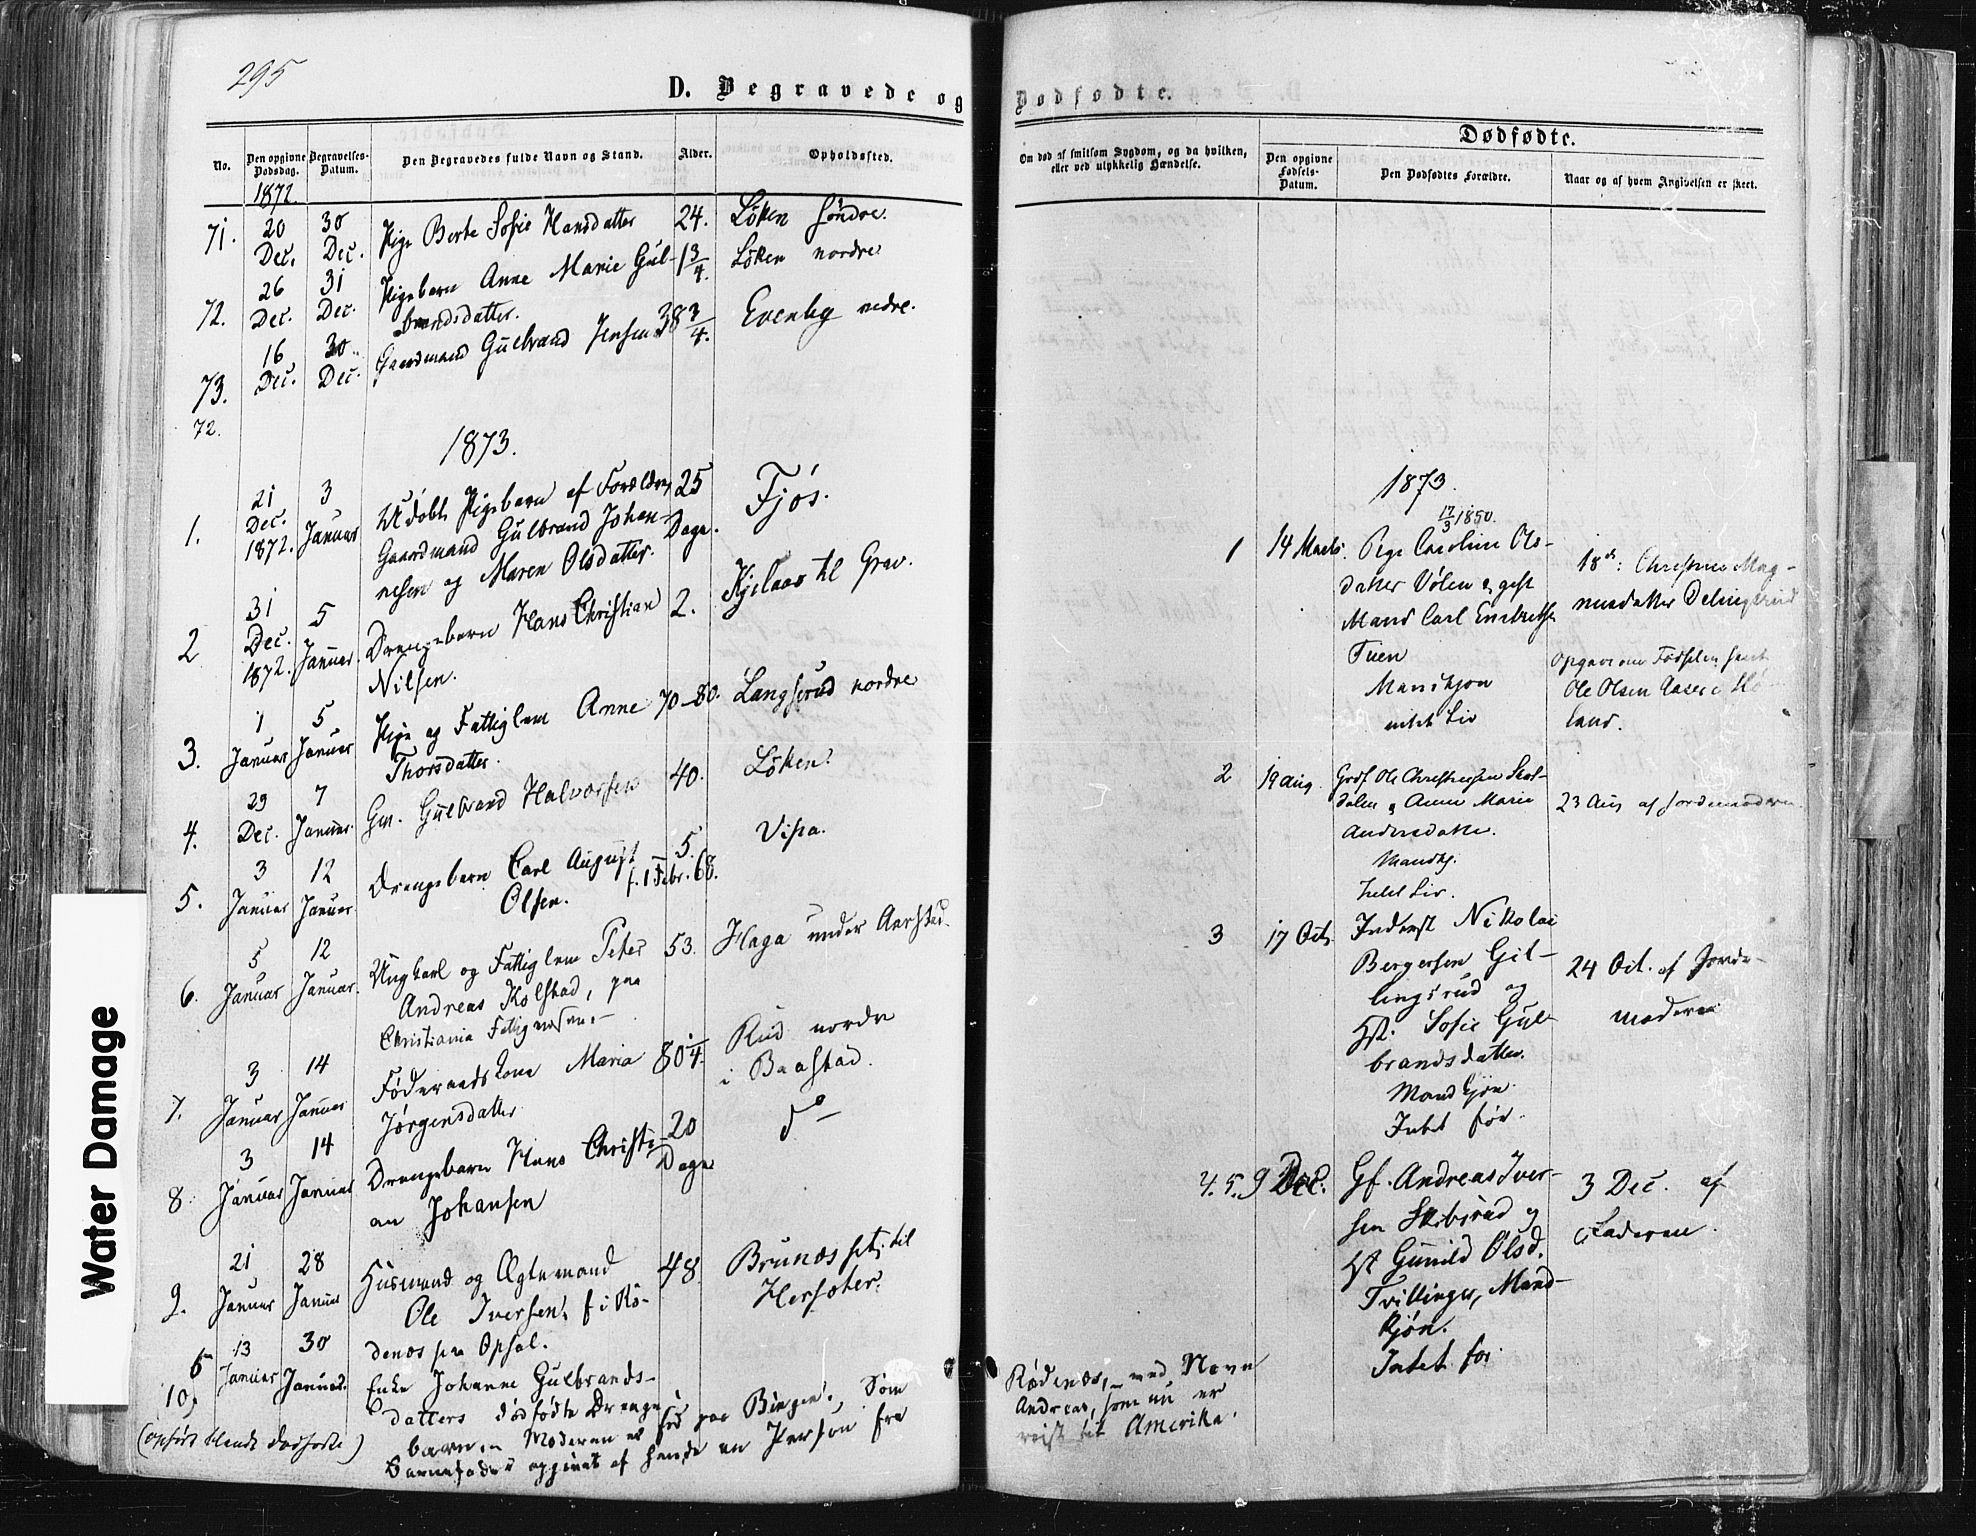 295
D. Begravede og Dødfødte.
No.
Den opgivne Dødsdag.
Begravelses-Datum.
Den Begravedes fulde Navn og Stand.
Alder.
Opholdssted.
1872.
71. 20 Dec. 30 Dec. Pige Berte Sofie Hansdatter 24. Løken søndre.
72. 26 Dec. 31 Dec. Pigebarn Anne Marie Gul- 1 3/4. Løken nordre
brandsdatter.
73. 16 Dec. 30 Dec. Gaardmand Gulbrand Jensen 38 3/4. Evenby nedre.
72.
1873.
1. 21 Dec. 1872. 3 Januar Udøbt Pigebarn af Forældre 25 Dage. Fjøs.
Gaardmand Gulbrand Johan-
nesen og Maren Olsdatter.
2 31 Dec. 1872. 5 Januar. Drengebarn Hans Christian 2. Kjelaas til Grav.
Nilsen.
3. 1 Januar 5 Januar Pige og Fattiglem Anne 70-80. Langserud nordre
Thorsdatter.
4. 29 Dec. 7 Januar. Gm. Gulbrand Halvorsen 40. Løken.
5. 3 Januar 12 Januar. Drengebarn Carl August 5. Visa.
Olsen. f. 1 Febr. 68.
6. 5 Januar 12 Januar. Ungkarl og Fattiglem Peter 53. Haga under Aarstad.
Andreas Kolstad, paa
Christiania Fattigvæsen.
7. 3 Januar 14 Januar Føderaadskone Maria 80 1/4. Rud nordre
Jørgensdatter i Baastad.
8. 3 Januar 14 Januar Drengebarn Hans Christi- 20 Dage do
an Johansen
9. 21 Januar 28 Januar Husmand og Ægtemand 48. Brunæs pl. til
Ole Iversen, f i Rø- Hersæter.
denæs paa Opsal.
10, 13 Januar 30 Januar. Enke Johanne Gulbrands-
datters dødfødte Drenge
(opført blandt dødfødte)
barn. Moderen er fød paa Bingen. Som
Barnefader opgivet af hende en Person fra
Rødenæs, med Navn
Andreas, som nu er
reist til Amerika.
Om død af smitsom Sygdom, og da hvilken,
eller ved ulykkelig Hændelse.
Dødfødte.
Den opgivne Fødsels-Datum.
Den Dødfødtes Forældre.
Naar og af hvem Angivelsen er skeet.
1873.
17/3 1850.
1 14 Marts. Pige Caroline Ols- 18de: Christine Mag-
datter Vølen &amp; gift nusdatter
Mand Carl
Tuen
Mandkjøn
intet Liv
Opgave om Fødselen
Ole Olsen
land.
2 19 Aug Grdf Ole Christensen
dalen &amp; Anne Marie 23 Aug af Jordemoderen
Andersdatter.
Mandkj.
Intet Liv.
3 17 Oct. Inderst Nikolai
Bergersen Git- 24 Oct. af Jorde-
lingsrud og moderen
Hst. Sofie Gul-
brandsdatter.
Mandkjøn.
Intet før.
4. 5. 9 Dec. Gf. Andreas Iver- 3 Dec. af
sen Skibsrud og Faderen.
Hst Gunild Olsd.
Tvillinger, Mand-
kjøn.
Intet før
Water Damage